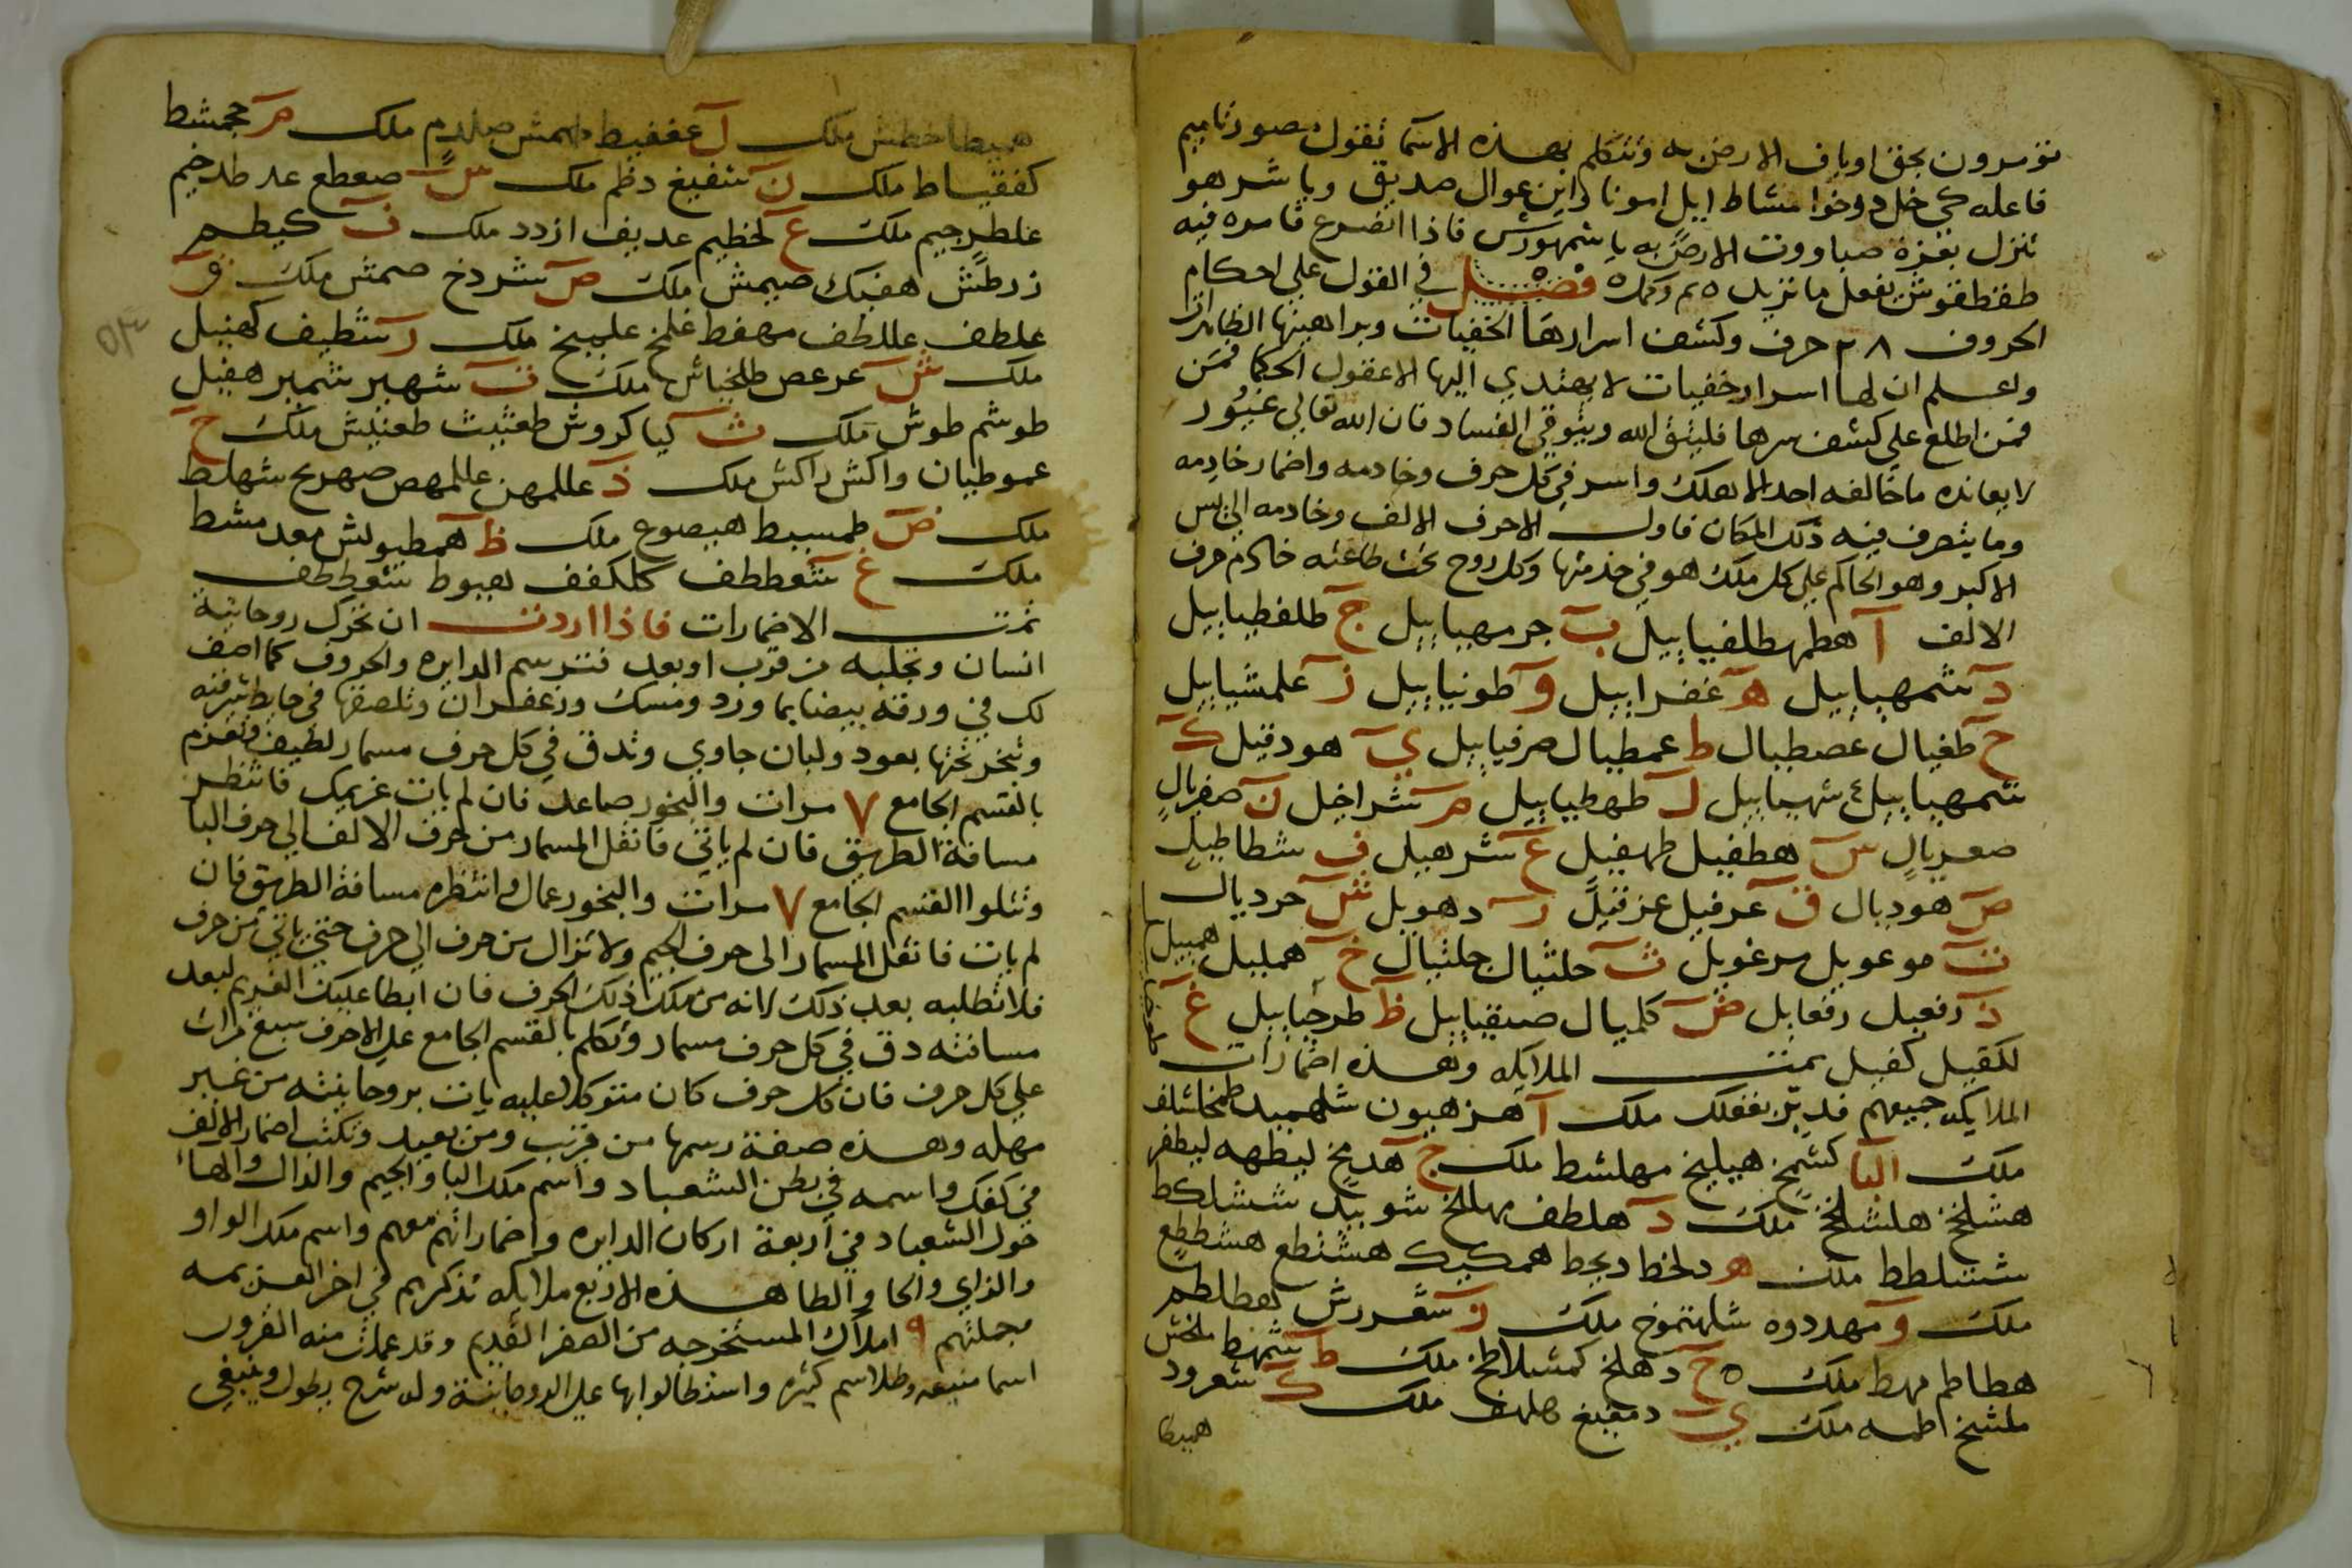 تومرون بحق اوياف الارض به وتتكلم بهذه الاسما تقول مصور ناميم
فاعله كي خل دوخوا مشاط ايل امونا واين عوال صديق وياشر هو
تنزل بعزة صباووت الارض به يا شمهورش فاذا انصرع فامره فيه
طفطفوش يفعل ما تريد ٥ تم وكمل ٥ فصل في القول على احكام
الحروف ٢٨ حرف وكشف اسرارها الخفيات وبراهينها الظاهرات
واعلم ان لها اسرار خفيات لا يهتدي اليها الا عقول الحكما فمن
فمن اطلع على كشف سرها فليتق الله ويتوقى الفساد فان الله تعالى غيور
لا يعانده ما خالفه احد الا هلك واسر في كل حرف وخادمه واضمار خادمه
وما يتصرف فيه ذلك المكان فاول الاحرف الالف وخادمه الريس
الاكبر وهو الحاكم على كل ملك هو في خدمتها وكل روح تحت طاعته خادم حرف
الالف آ هطمهطلفياييل ب جرمهياييل ج طلفطياييل
د شمهياييل ه غفراييل و طونياييل ز علمشياييل
ح طغيال عصطيال ط عمطيال صرفياييل ي هودقيل ك
شمهياييل شهياييل ل طهطياييل م شراخيل ن صفريال
صعريال س هطفيل طهفيل ع شرهيل ف شطاطيل
ص هوديال ق عرفيل عزقيل ر دهويل ش حرديال
ت موعويل مرغويل ث حلثيال جلثيال خ همليل هميل
ذ رفعيل رفعايل ض كلميال صيقياييل ظ طرجياييل غ
لكقيل كفيل تمت الملايكه وهذه اضمارات
الملايكه جميعهم فدبر بعقلك ملك آ هزهيون شلهميد طمخاشلف
ملك البا كشمخ هيليخ مهلشط ملك ج هديخ ليطهه ليطفر
هشلخ هلشلخ ملك د هلطف مهللخ شوبيد ششلكط
ششلطط ملك ه دلخط ديجط همكيك هشنطع هشططع
ملك و مهددوه شلهتموخ ملك ز شغررش لعطلطم
هطاطم مهط ملك ٥ ح دهلخ كمشلاطخ ملك ط شمهط ملخش
ملشيخ اطمه ملك ي دمغيغ هلهف ملك ك شعرود
هميطا
هميطا خطش ملك ل عففيط طهمش صلدم ملك م ججمشط
كفقياط ملك ن شفيغ دظم ملك س صعطع عد طدخيم
غلطرجيم ملك ع لخظيم عديف ازدد ملك ف كيطم
زدطش هفيك صيمش ملك ص شردخ صمش ملك ق
علطف عللطف مهفط غلمخ علميخ ملك ر شطيف كهنيل
ملك ش عرعص طلخياش ملك ت شهبر شمبر هفيل
طوشم طوش ملك ث كياكروش طعثيث طعنيش ملك خ
عموطيان واكش راكش ملك ذ عللمهن عللمهص صهريج شهلط
ملك ض طمسيط هيصوع ملك ظ همطيولش معد مشط
ملك غ شعططف كلكفف لهيوط شعوططف
تمت الاضمارات فاذا اردت ان تحرك روحانية
انسان وتجلبه من قرب او بعد فترسم الدايره والحروف كما اصف
لك في ورقة بيضا بما ورد ومسك وزعفران وتلصقها في حايط شرقيه
وتبخر تحتها بعود ولبان جاوي وتدق في كل حرف مسمار لطيف وتعزم
بالقسم الجامع ٧ مرات والبخور صاعد فان لم يات غريمك فانتظر
مسافة الطريق فان لم ياتي فانقل المسمار من حرف الالف الى حرف البا
وتتلوا القسم الجامع ٧ مرات والبخور عمال وانتظره مسافة الطريق فان
لم يات فانقل المسمار الى حرف الجيم ولا تزال من حرف الى حرف حتى ياتي من حرف
فلا تطلبه بعد ذلك لانه من ملك ذلك الحرف فان ابطا عليك الغريم لبعد
مسافته دق في كل حرف مسمار وتكلم بالقسم الجامع على الاحرف سبع مرات
على كل حرف فان كل حرف كان متوكلا عليه يات بروحانيته من غير
مهله وهذه صفة رسمها من قرب ومن بعيد وتكتب اضمار الالف
في كفك واسمه في بطن الشعباد واسم ملك البا والجيم والدال والها
حول الشعباد في اربعة اركان الدايره واضماراتهم معهم واسم ملك الواو
والزاي والحا والطا هذه الاربع ملايكه تذكرهم في اخر العزيمه
مجملتهم ٩ املاك المستخرجه من الصفر القديم وقد عملت منه القرون
اسما منيعه وطلاسم كثيره واستطالوا بها على الروحانية وله شرح يطول وينبغي